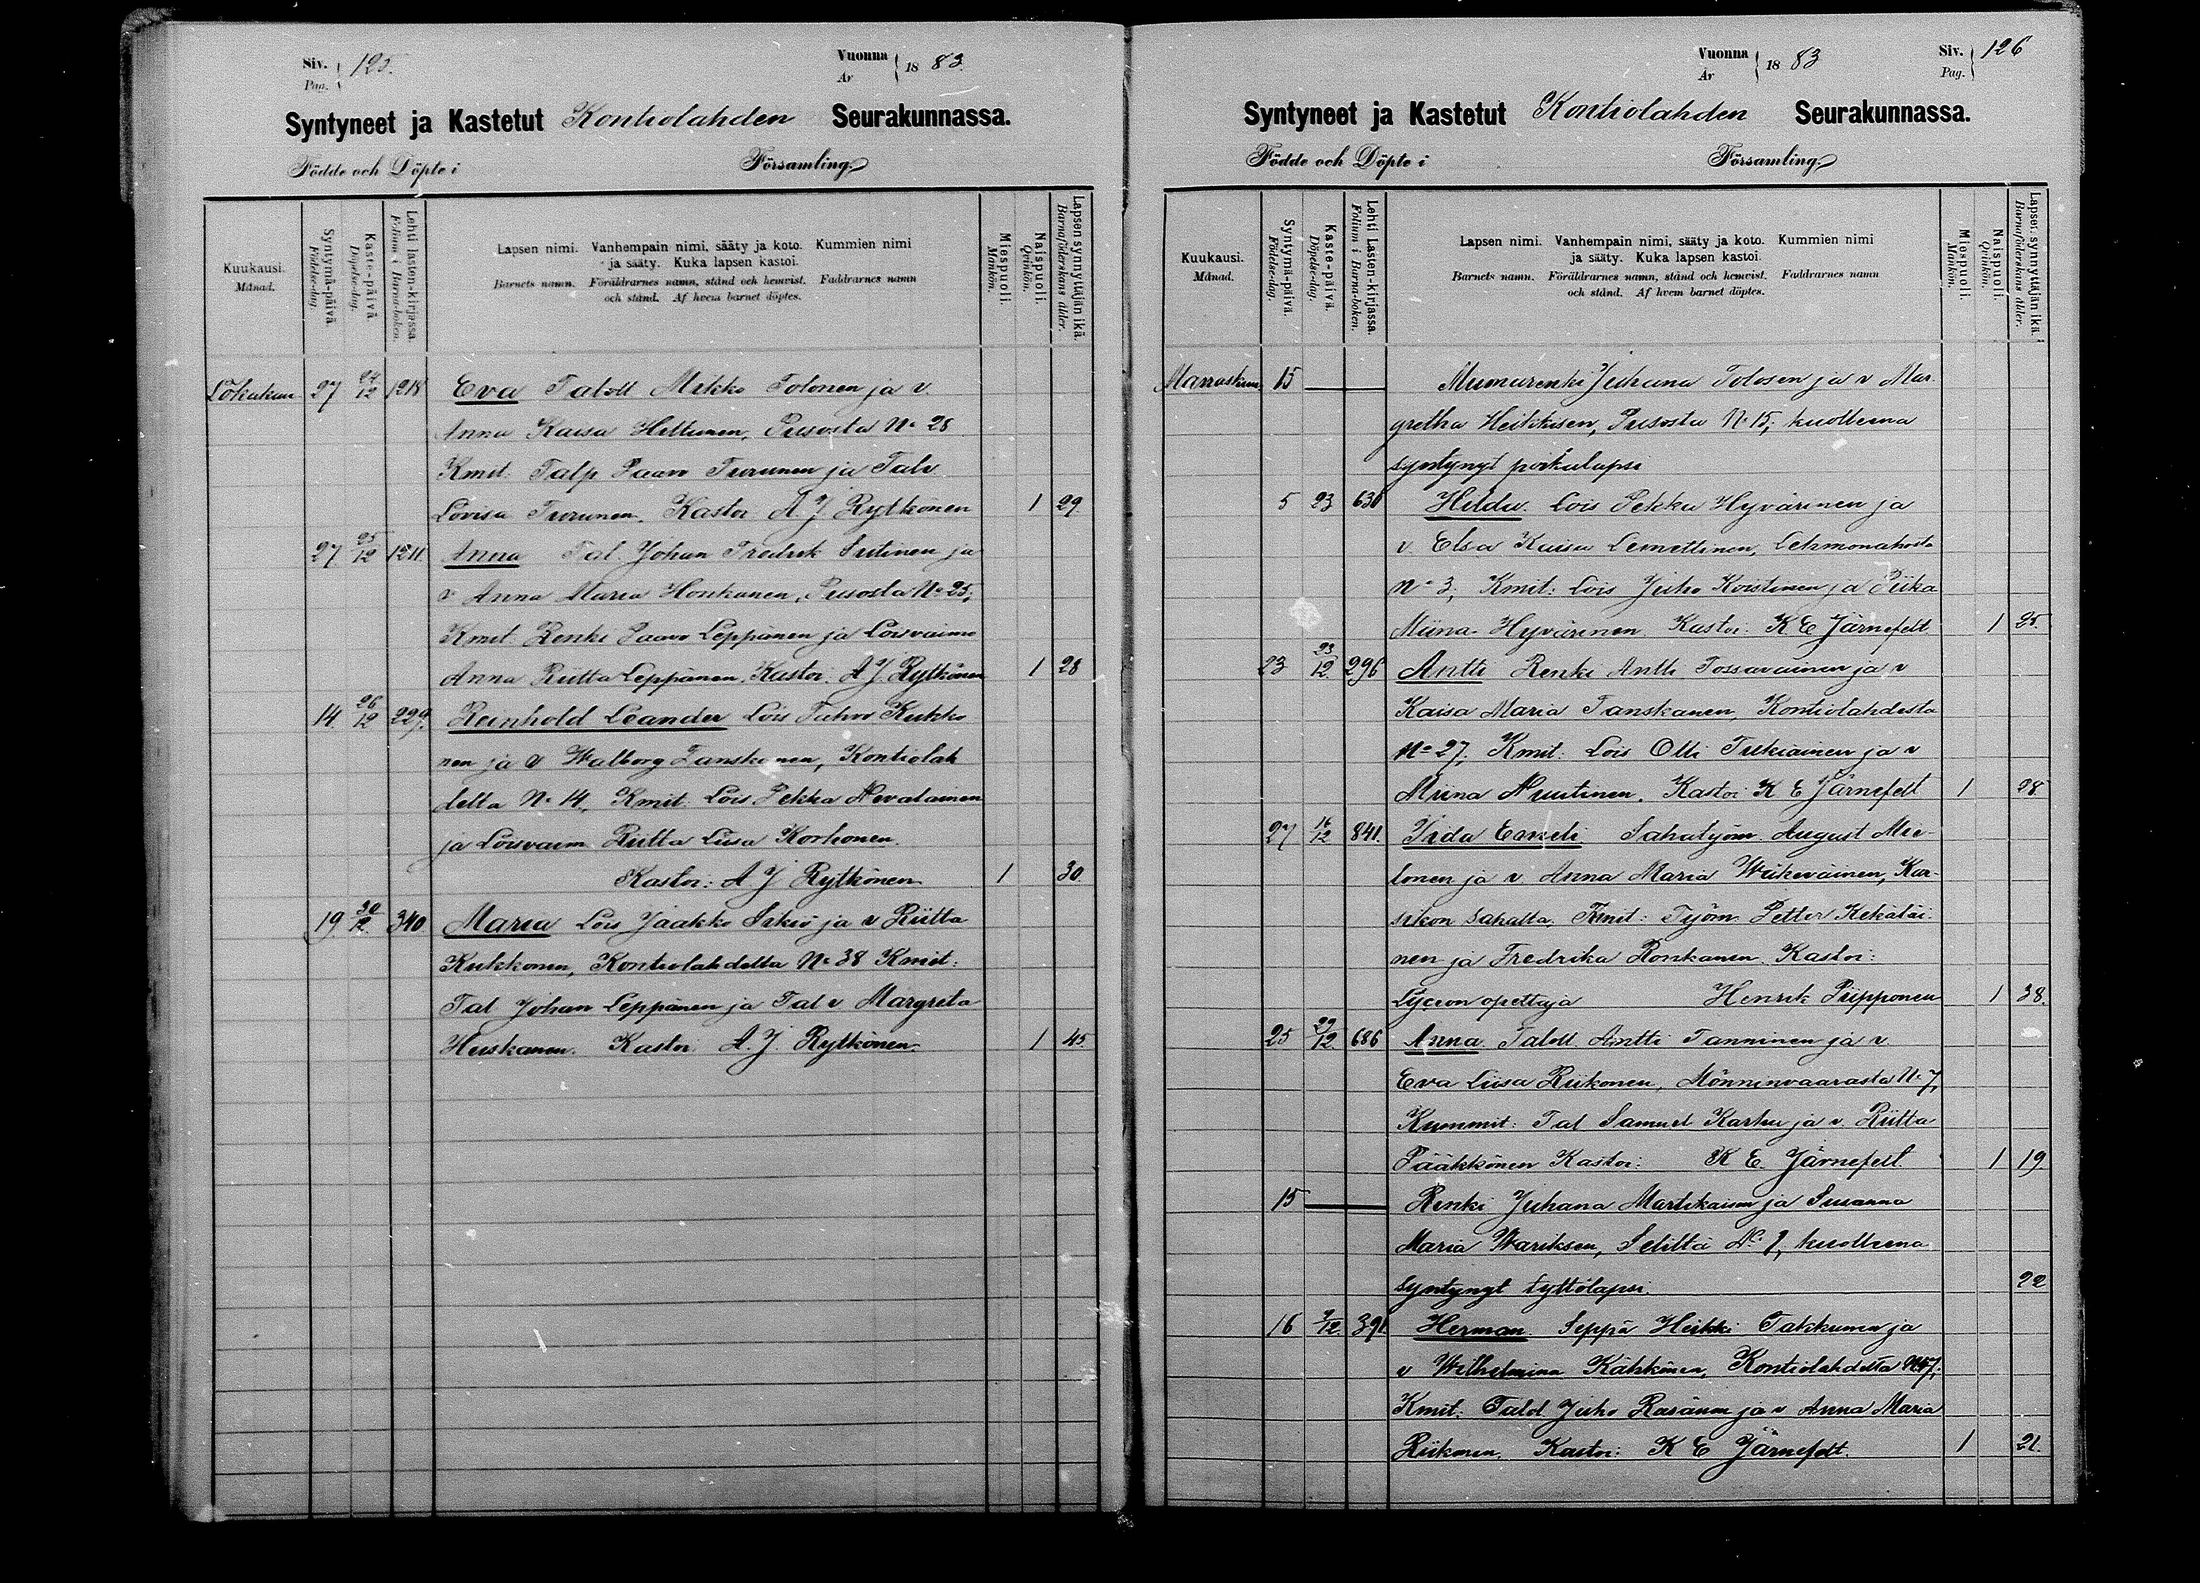 Siv. 125.
Pag.
Vuonna 1883.
År
Syntyneet ja Kastetut Kontiolahden Seurakunnassa.
Födde och Döpte i Församling.
Kuukausi. Månad.
Syntymä-päivä Födelse-dag.
Kaste-päivä Döpelse-dag.
Lehti lasten-kirjassa. Folium i Barna-boken.
Lapsen nimi. Vanhempain nimi, sääty ja koto. Kummien nimi
ja sääty. Kuka lapsen kastoi.
Barnets namn. Föräldrarnes namn, stånd och hemvist. Faddrarnes namn
och stånd. Af hvem barnet döptes.
Miespuoli. Mankön.
Naispuoli. Qvinkön.
Lapsen synnyttäjän ikä. Barnaföderskans ålder.
Lokakuu 27 24/12 1218 Eva Taloll Mikko Tolonen ja v.
Anna Kaisa Hiltunen, Pusosta No 28
Kmit. Talp Paavo Turunen ja Talv
Lovisa Turunen. Kastoi A J Rytkönen 1 29
27 25/12 1211. Anna Tal. Johan Fredrik Sutinen ja
v Anna Maria Honkanen, Pusosta No 25;
Kmit. Renki Paavo Leppänen ja Loisvaimo
Anna Riitta Leppänen. Kastoi. A J Rytkönen 1 28
14. 26/12 229. Reinhold Leander Lois Tahvo Kukko
nen ja v Walborg Tanskanen, Kontiolah
della No 14, Kmit. Lois Pekka Nevalainen
ja Loisvaim Riitta Liisa Korhonen.
Kastoi: A J Rytkönen 1 30.
19. 30/12. 340 Maria Lois Jaakko Sikiö ja v Riitta
Kukkonen, Kontiolahdella No 38 Kmit:
Tal Johan Leppänen ja Tal v Margreta
Heiskanen. Kastoi. A. J. Rytkönen. 1 45
Vuonna 1883
År
Siv. 126
Pag.
Syntyneet ja Kastetut Kontiolahden Seurakunnassa.
Födde och Döpte i Församling.
Kuukausi. Månad.
Syntymä-päivä. Födelse-dag.
Kaste-päivä. Döpelse-dag.
Lehti Lasten-kirjassa. Folium i Barna-boken.
Lapsen nimi. Vanhempain nimi, sääty ja koto. Kummien nimi
ja sääty. Kuka lapsen kastoi.
Barnets namn. Föräldrarnes namn, stånd och hemvist. Faddrarnes namn
och stånd. Af hvem barnet döptes.
Miespuoli. Mankön.
Naispuoli. Qvinkön.
Lapsen synnyttäjän ikä. Barnaföderskans ålder.
Marraskuu 15 Muonarenki Juhana Tolosen ja v Mar
gretha Heikkisen, Pusosta No 15; kuolleena
syntynyt poikalapsi
5 23 631 Hilda. Lois Pekka Hyvärinen ja
v. Elsa Kaisa Lemettinen, Lehmonahosta
No 3; Kmit: Lois Juho Koistinen ja Piika
Miina Hyvärinen Kastoi: K E Järnefelt 1 25.
23 23/12 296 Antti Renki Antti Tossavainen ja v
Kaisa Maria Tanskanen, Kontiolahdesta
No 27; Kmit: Lois Olli Tukiainen ja v
Miina Nuutinen. Kastoi K E Järnefelt 1 28
27 16/12 841. Iida Emeli Sahatyöm August Mie-
lonen ja v. Anna Maria Wäkeväinen, Kar-
sikon sahalta, Kmit: Työm Petter Kekäläi
nen ja Fredrika Ronkanen. Kastoi:
Lyceon opettaja Henrik Piipponen 1 38.
25 29/12. 686 Anna. Taloll Antti Tanninen ja v.
Eva Liisa Riikonen, Mönninvaarasta No 7,
Kummit: Tal Samuel Karhu ja v. Riitta
Pääkkönen Kastoi: K E. Järnefelt. 1 19
15 Renki Juhana Martikaisen ja Susanna
Maria Wariksen, Selillä No 1, kuolleena
syntynyt tyttölapsi. 22
16 9/12 391 Herman. Seppä Heikki Takkunen ja
v Wilhelmina Kähkönen, Kontiolahdelta No 7;
Kmit: Talol Juho Räsänen ja v Anna Maria
Riikonen, Kastoi: K E Järnefelt. 1 21.